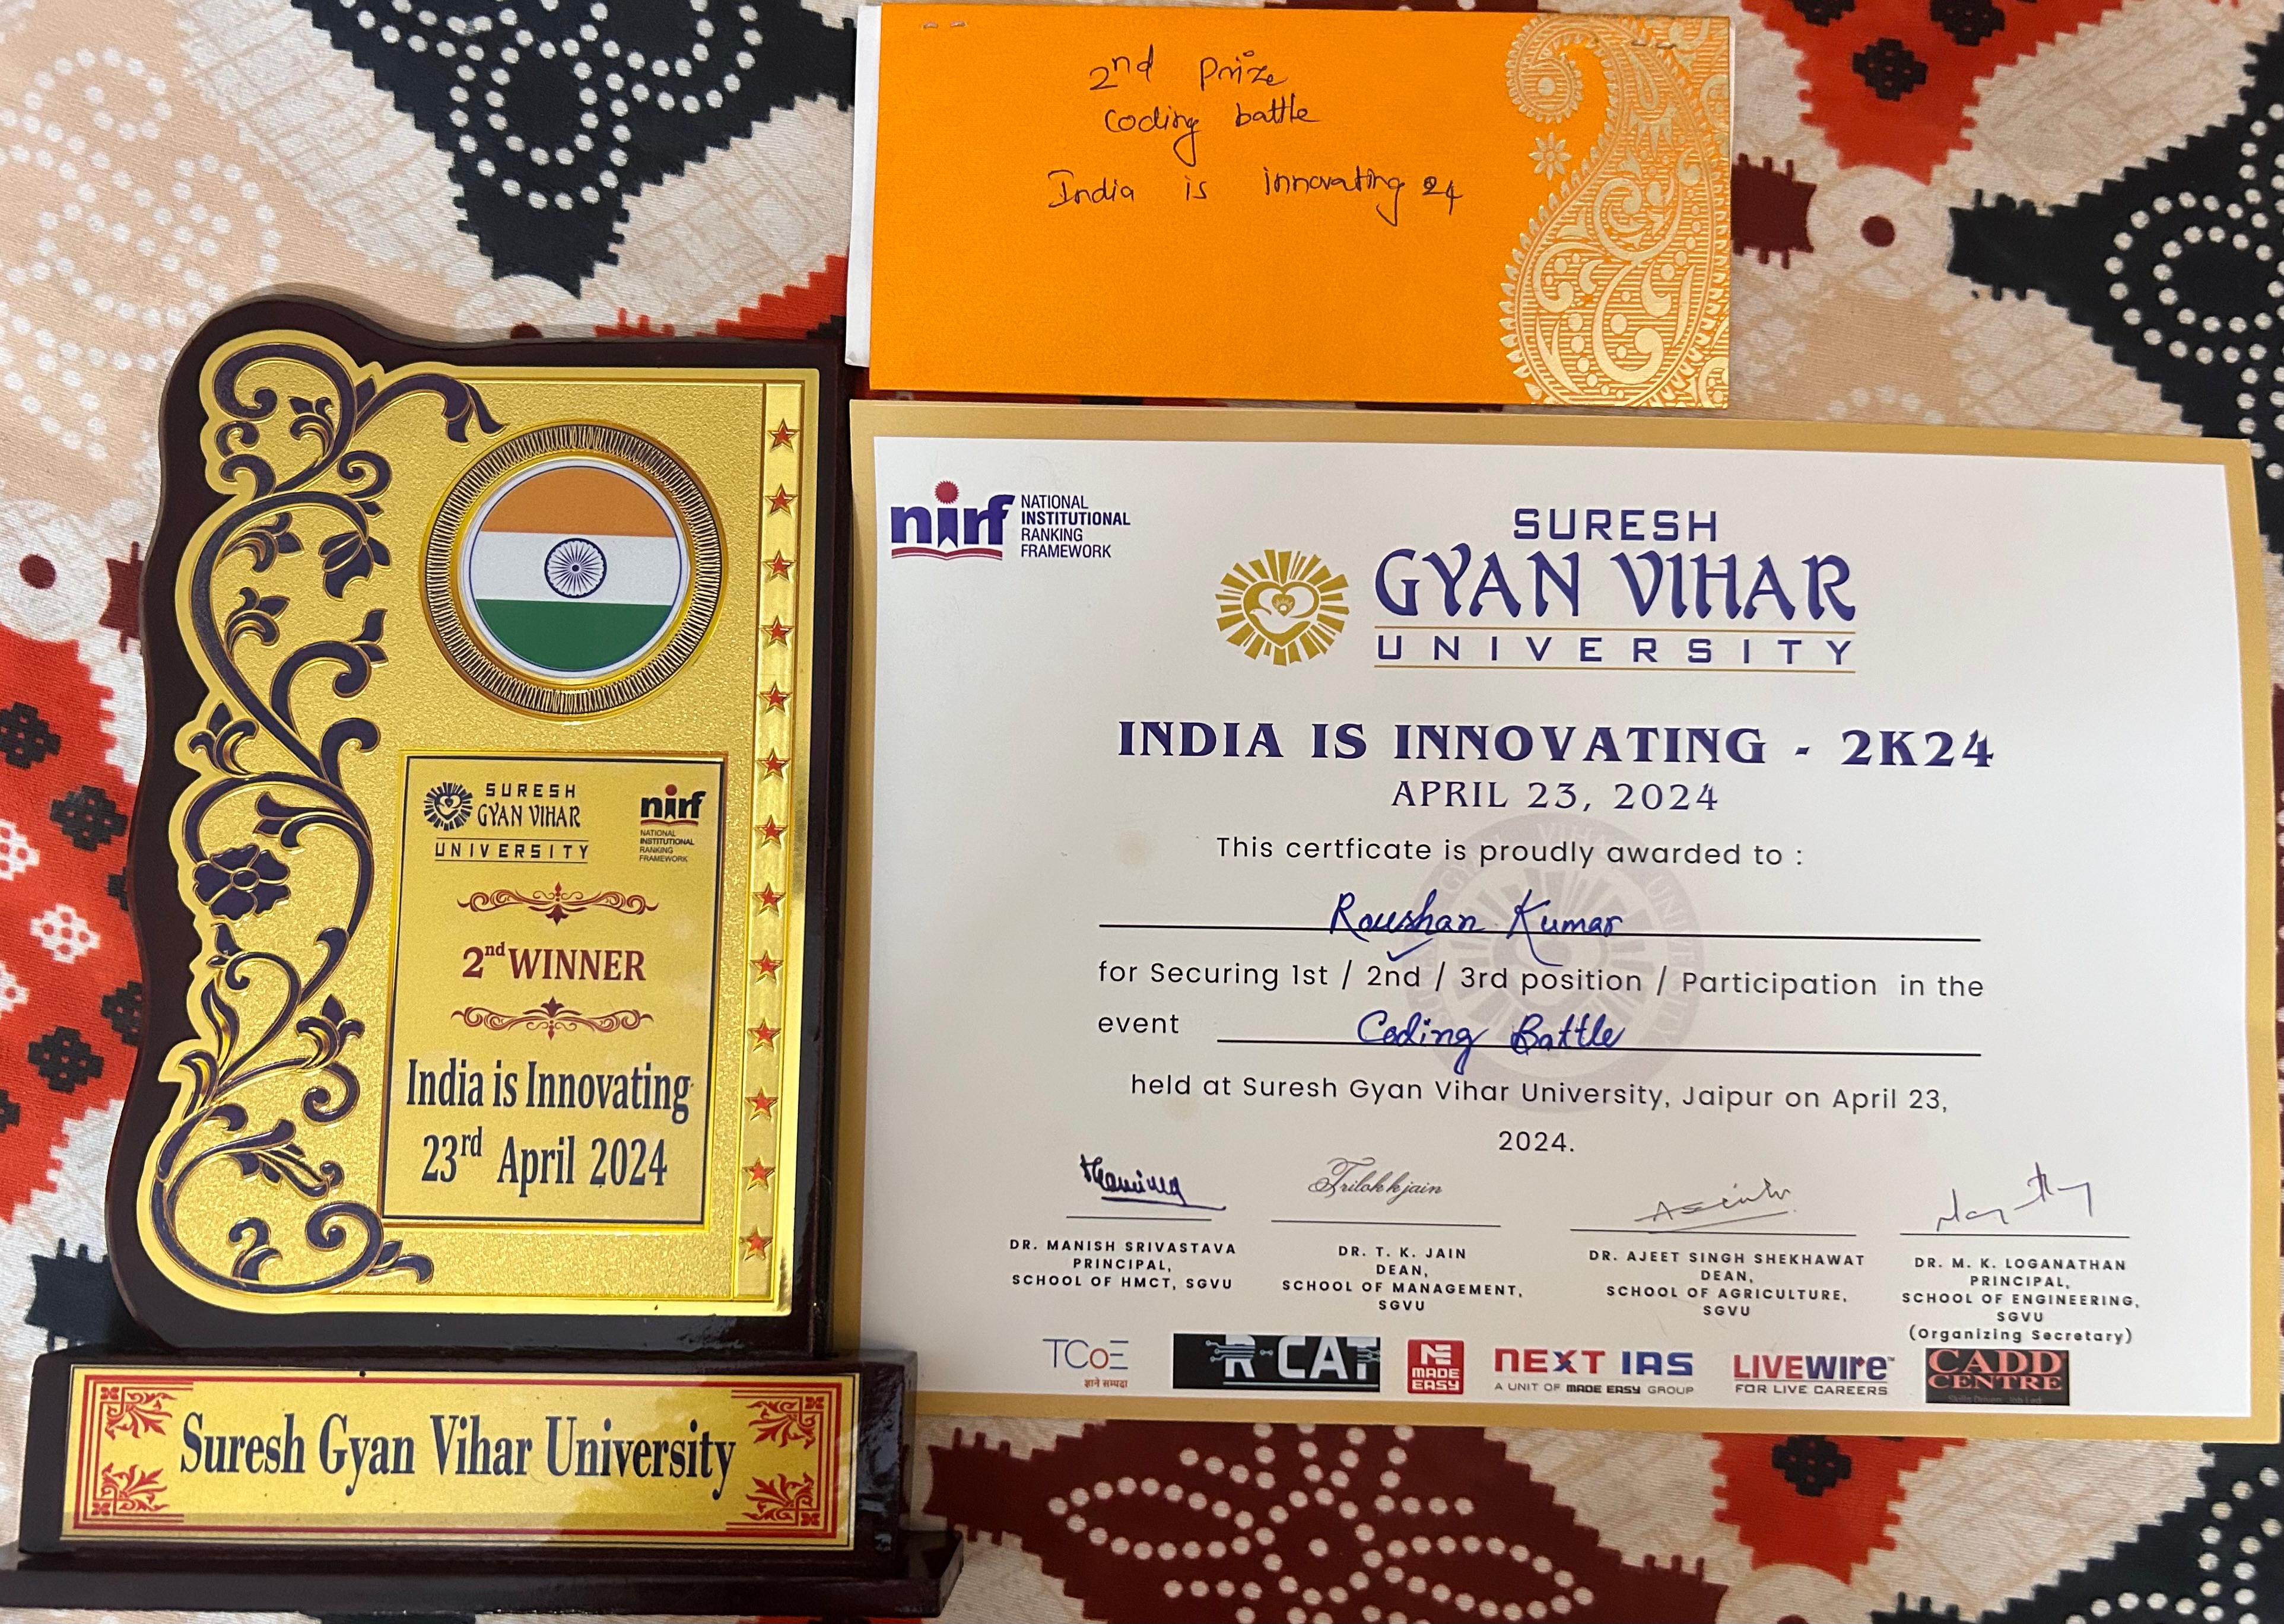 2nd Prize
Coding battle
India is innovating 24
SURESH
GYAN VIHAR
UNIVERSITY
nirf
NATIONAL
INSTITUTIONAL
RANKING
FRAMEWORK
2nd WINNER
India is Innovating
23rd April 2024
Suresh Gyan Vihar University
nirf
NATIONAL
INSTITUTIONAL
RANKING
FRAMEWORK
SURESH
GYAN VIHAR
UNIVERSITY
INDIA IS INNOVATING - 2K24
APRIL 23, 2024
This certficate is proudly awarded to :
Roushan Kumar
for Securing 1st / 2nd / 3rd position / Participation in the
event Coding Battle
held at Suresh Gyan Vihar University, Jaipur on April 23,
2024.
Trilokkjain
DR. MANISH SRIVASTAVA
PRINCIPAL,
SCHOOL OF HMCT, SGVU
DR. T. K. JAIN
DEAN,
SCHOOL OF MANAGEMENT,
SGVU
DR. AJEET SINGH SHEKHAWAT
DEAN,
SCHOOL OF AGRICULTURE,
SGVU
DR. M. K. LOGANATHAN
PRINCIPAL,
SCHOOL OF ENGINEERING,
SGVU
(Organizing Secretary)
TCoE
R-CAT
MADE
EASY
NEXT IAS
A UNIT OF MADE EASY GROUP
LIVEWIRE
FOR LIVE CAREERS
CADD
CENTRE